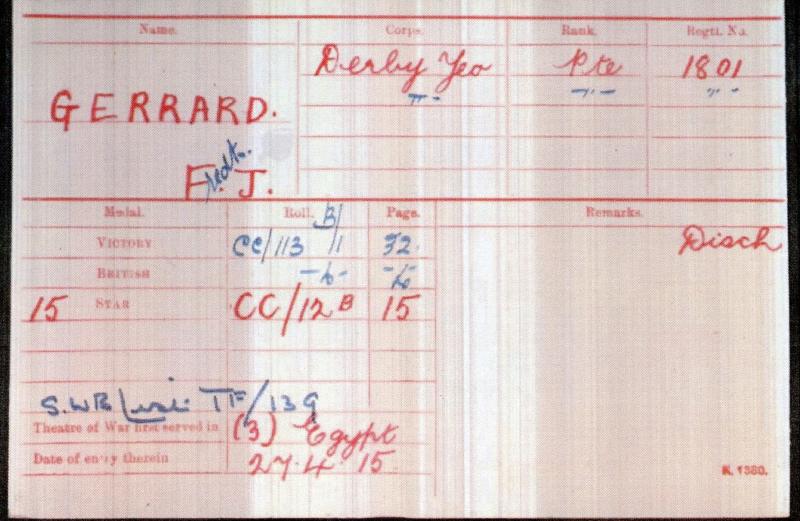 Name. Corps. Rank. Regtl. No.
Derby Yeo Pte 1801
GERRARD. -"- -"- " "
Fredk. J.
Medal. Roll. Page. Remarks.
VICTORY CC/113 B/1 32. Disch
BRITISH
15 STAR CC/12B 15
S.W.B List TF/139
Theatre of War first served in (3) Egypt
Date of entry therein 27.4.15
K. 1380.